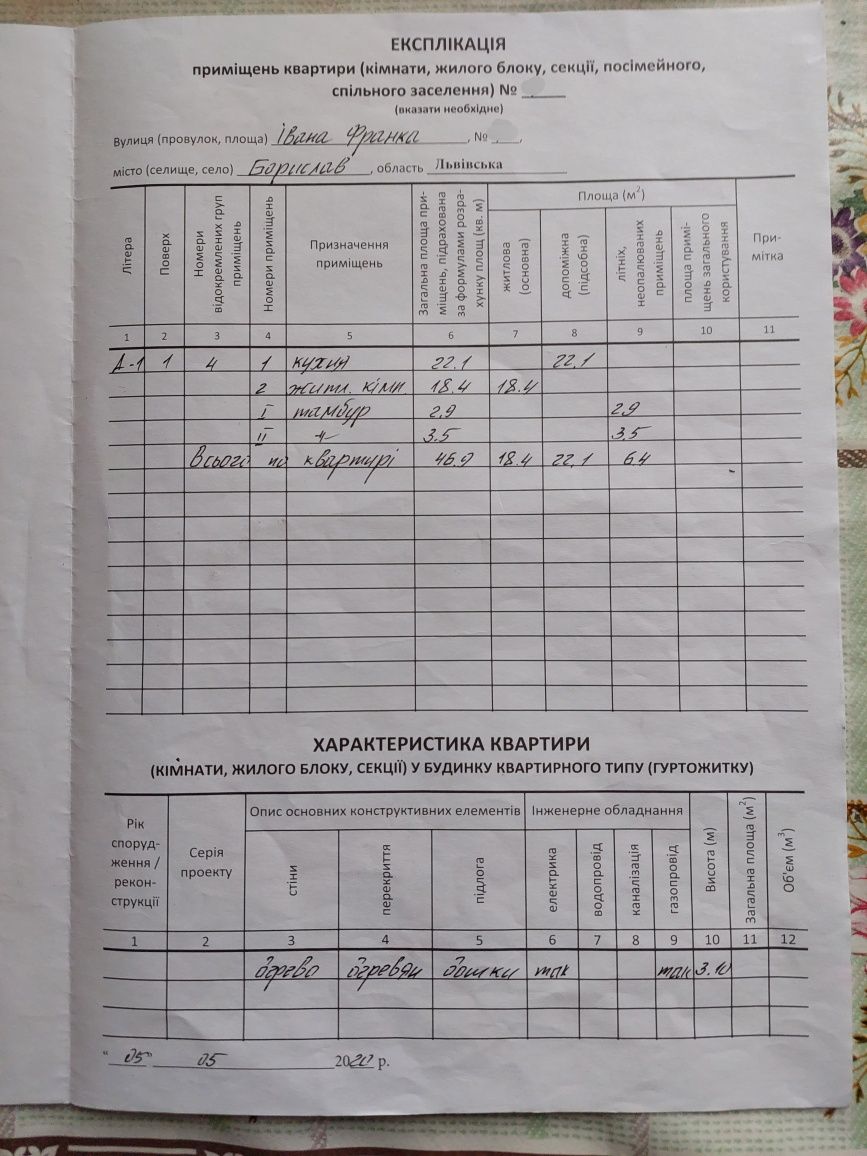 ЕКСПЛІКАЦІЯ
приміщень квартири (кімнати, жилого блоку, секції, посімейного,
спільного заселення) №
(вказати необхідне)
Вулиця (провулок, площа) Івана Франка, №
місто (селище, село) Борислав, область Львівська
Літера Поверх Номери відокремлених груп приміщень Номери приміщень Призначення приміщень Загальна площа приміщень, підрахована за формулами розрахунку площ (кв. м) Площа (м²) При-мітка
житлова (основна) допоміжна (підсобна) літніх, неопалюваних приміщень площа примі-щень загального користування
1 2 3 4 5 6 7 8 9 10 11
А-1 1 4 1 кухня 22.1 22,1
2 житл. кімн. 18.4 18.4
I тамбур 2,9 2,9
II -//- 3.5 3,5
Всього по квартирі 46.9 18.4 22,1 6.4
ХАРАКТЕРИСТИКА КВАРТИРИ
(КІМНАТИ, ЖИЛОГО БЛОКУ, СЕКЦІЇ) У БУДИНКУ КВАРТИРНОГО ТИПУ (ГУРТОЖИТКУ)
Рік споруд-ження / рекон-струкції Серія проекту Опис основних конструктивних елементів Інженерне обладнання Висота (м) Загальна площа (м²) Об'єм (м³)
стіни перекриття підлога електрика водопровід каналізація газопровід
1 2 3 4 5 6 7 8 9 10 11 12
дерево дерев'ян дошки так так 3.10
"05" 05 2020 р.